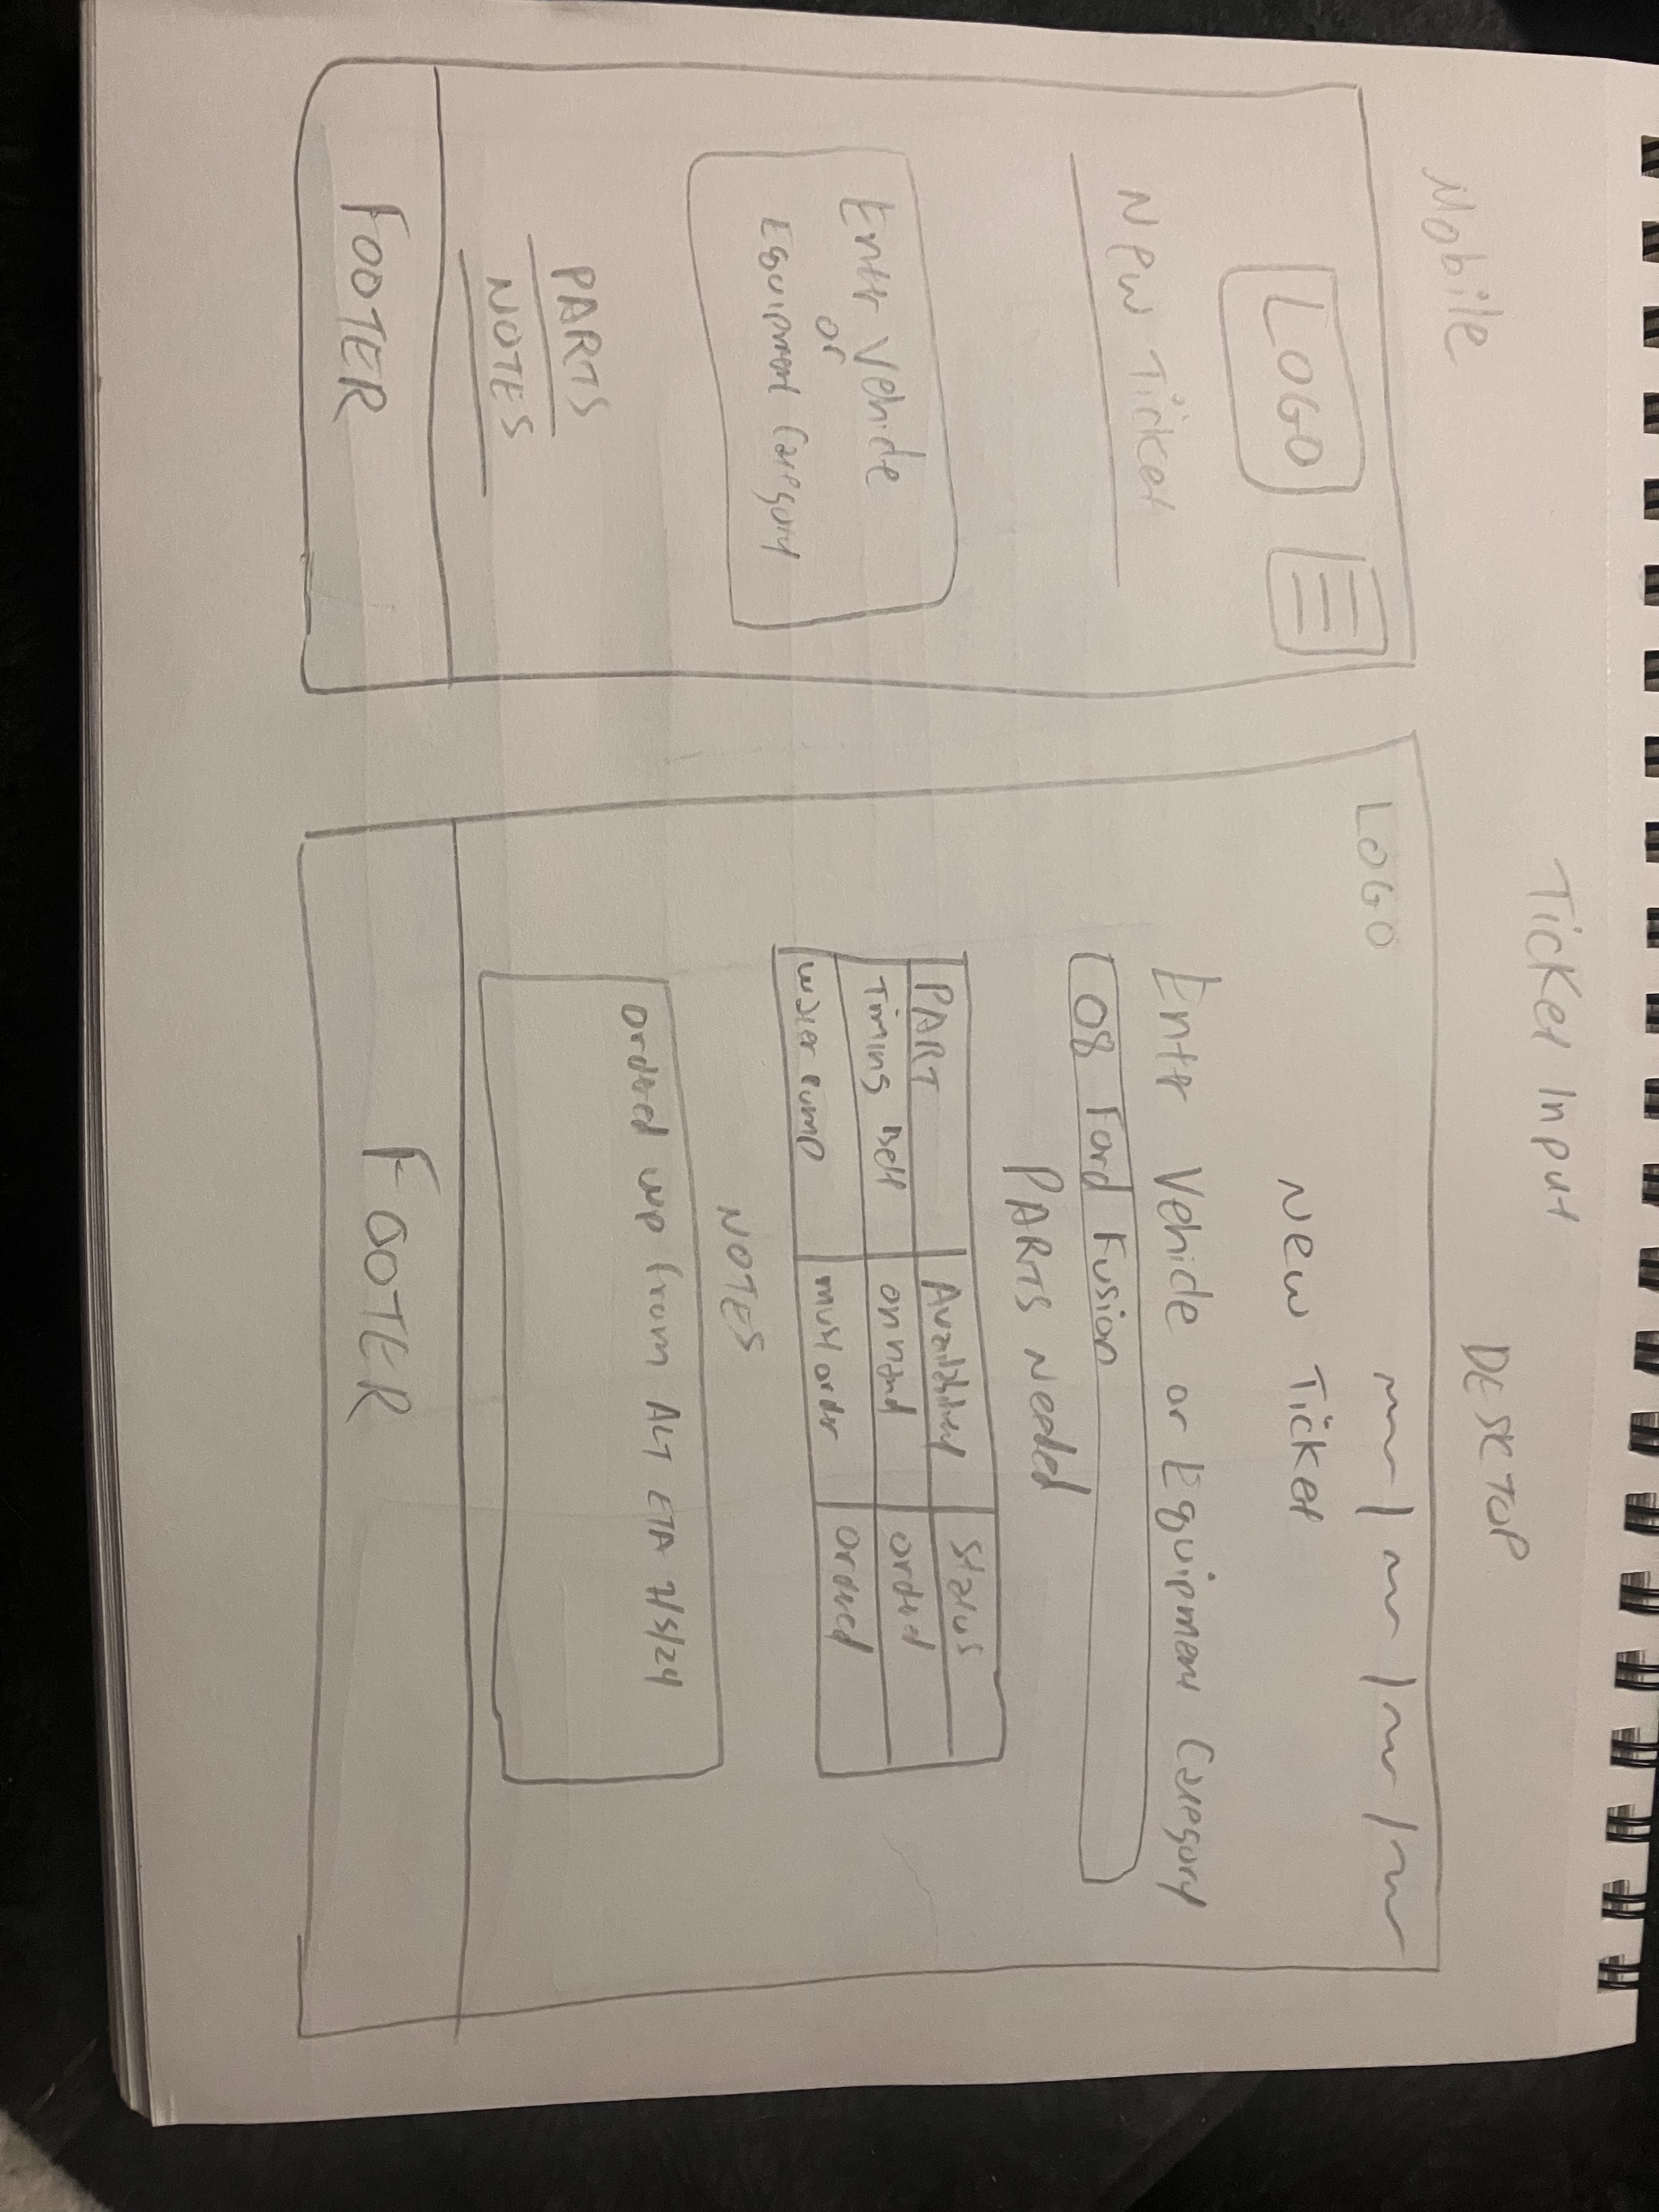 Ticket Input
Mobile
LOGO
New Ticket
Entr Vehicle
or
Equipment Category
PARTS
NOTES
FOOTER
DESKTOP
LOGO
New Ticket
Entr Vehicle or Equipment Category
08 Ford Fusion
PARTS Needed
PART Availability Status
Timing Belt on hand ordered
Water Pump must order ordered
NOTES
ordered wp from ALT ETA 7/5/24
FOOTER